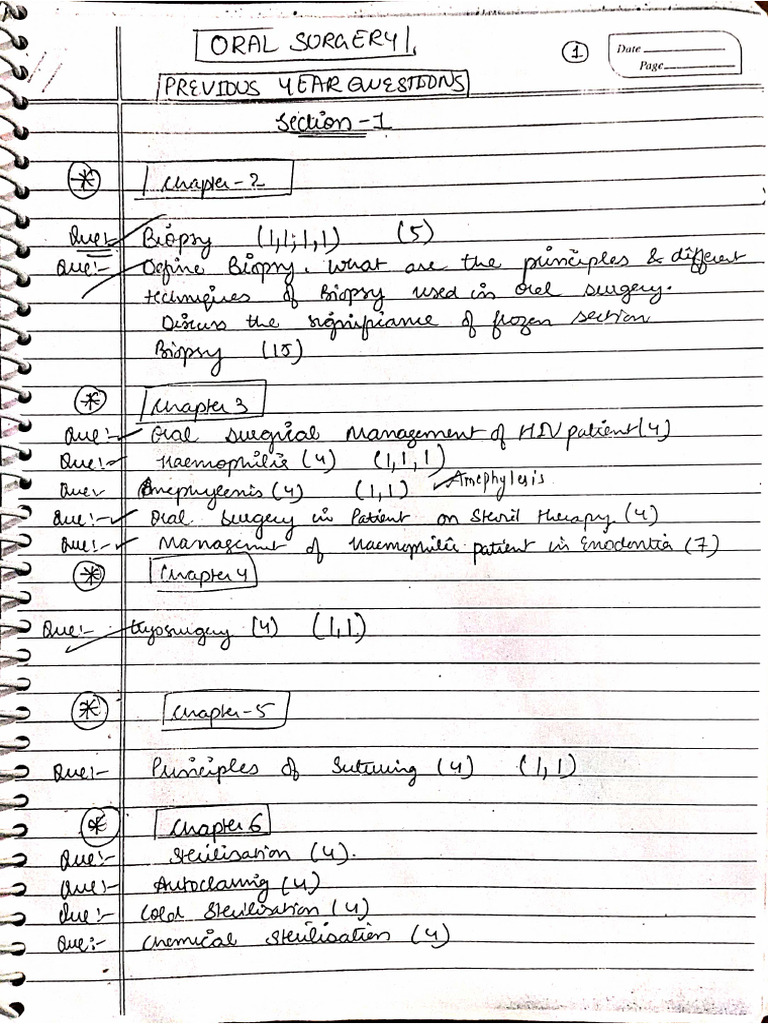 ORAL SURGERY
1
Date
Page
PREVIOUS YEAR QUESTIONS
Section-1
Chapter-2
Que:- Biopsy (1,1,1,1) (5)
Que:- Define Biopsy. What are the principles & different
techniques of Biopsy used in oral surgery.
Discuss the significance of frozen section
Biopsy (15)
Chapter 3
Que:- Oral surgical Management of HIV patient (4)
Que:- Haemophilia (4) (1,1,1)
Que (4) (1,1) Anephylexis
Que:- Oral surgery in Patient on Steril therapy (4)
Que:- Managemnt of Haemophilic patient in Enodontia (7)
Chapter 4
Que:- Kyosurgery (4) (1,1)
Chapter-5
Que:- Principles of Suturing (4) (1,1)
Chapter 6
Que:- Sterilisation (4).
Que:- Autoclaving (4)
Que:- Cold Sterilisation (4)
Que:- Chemical Sterilisation (4)